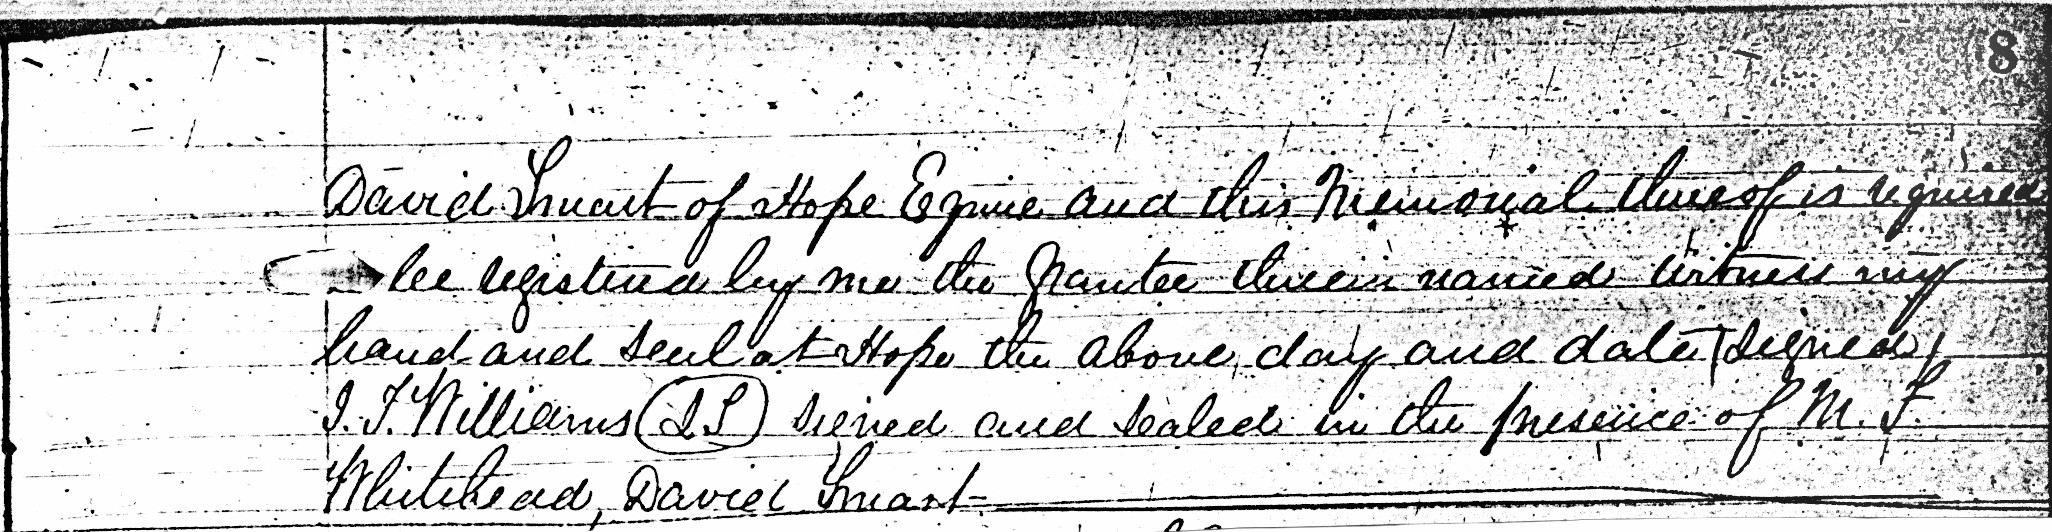 8
David Smart of Hope Eqirie and this Memorial thereof is required
be registered by me the Grantee therein named Witness my
hand and seal at Hope the above day and date (signed)
J. T. Williams (LS) signed and sealed in the presence of M. F.
Whitehead, David Smart